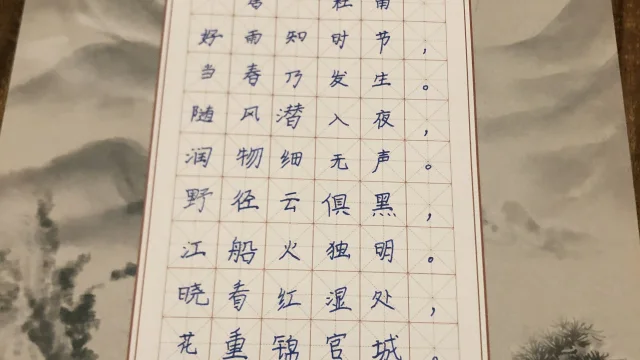 杜甫
好雨知时节，
当春乃发生。
随风潜入夜，
润物细无声。
野径云俱黑，
江船火独明。
晓看红湿处，
花重锦官城。